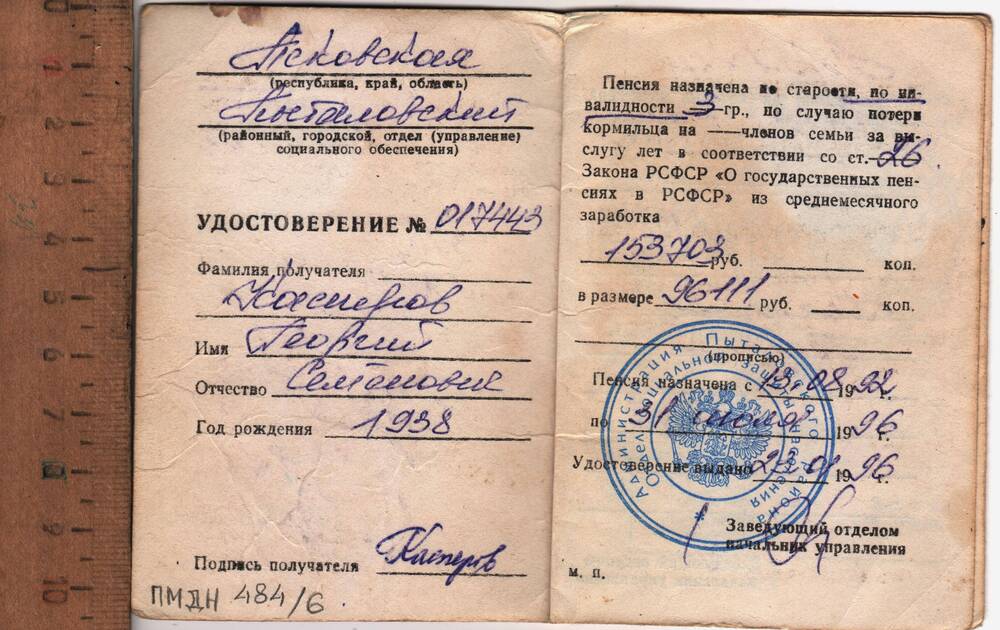 Псковская
(республика, край, область)
Пыталовский
(районный, городской, отдел (управление)
социального обеспечения)
УДОСТОВЕРЕНИЕ № 017443
Фамилия получателя
Касперов
Имя Георгий
Отчество Семенович
Год рождения 1938
Подпись получателя Касперов
ПМДН 484/6
Пенсия назначена по старости, по ин-
валидности 3 гр., по случаю потери
кормильца на — членов семьи за вы-
слугу лет в соответствии со ст. 26
Закона РСФСР «О государственных пен-
сиях в РСФСР» из среднемесячного
заработка
153703 руб. коп.
в размере 96111 руб. коп.
(прописью)
Пенсия назначена с 13.08 1992 г.
по 31 июля 1996 г.
Удостоверение выдано 23.01 1996 г.
Заведующий отделом
начальник управления
м. п.
Администрация Пыталовского района
Отдел социальной защиты населения
1
4
5
6
7
8
9
10